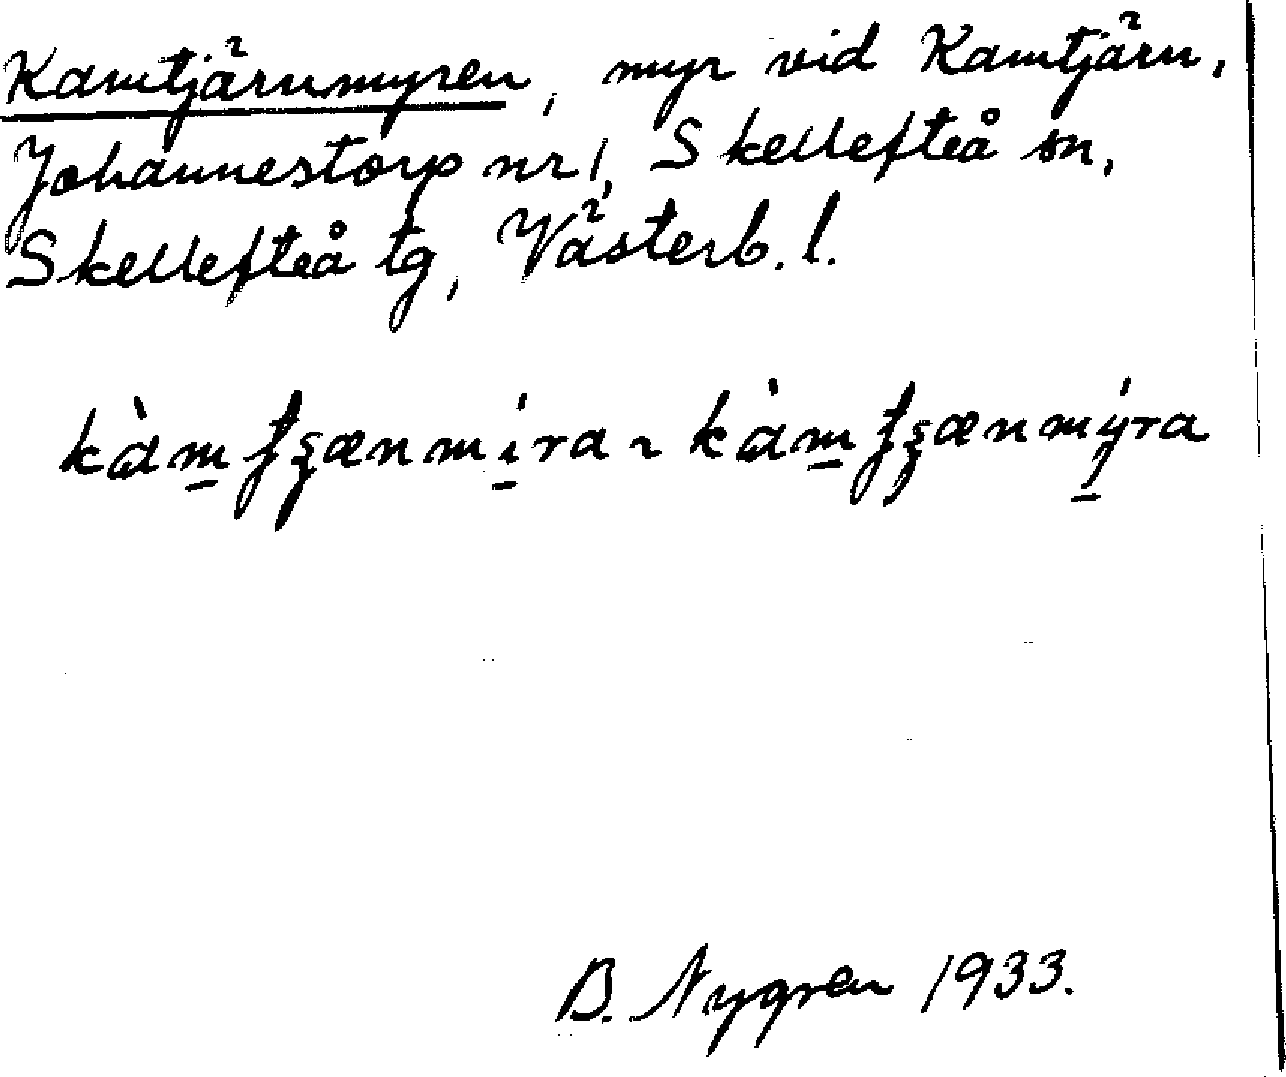 Kamtjärnmyren, myr vid Kamtjärn,
Johannestorp nr 1, Skellefteå sn,
Skellefteå tg, Västerb. l.
kàm̲ʈʂænmí̲ra ~ kàm̲ʈʂænmý̲ra
B. Nygren 1933.